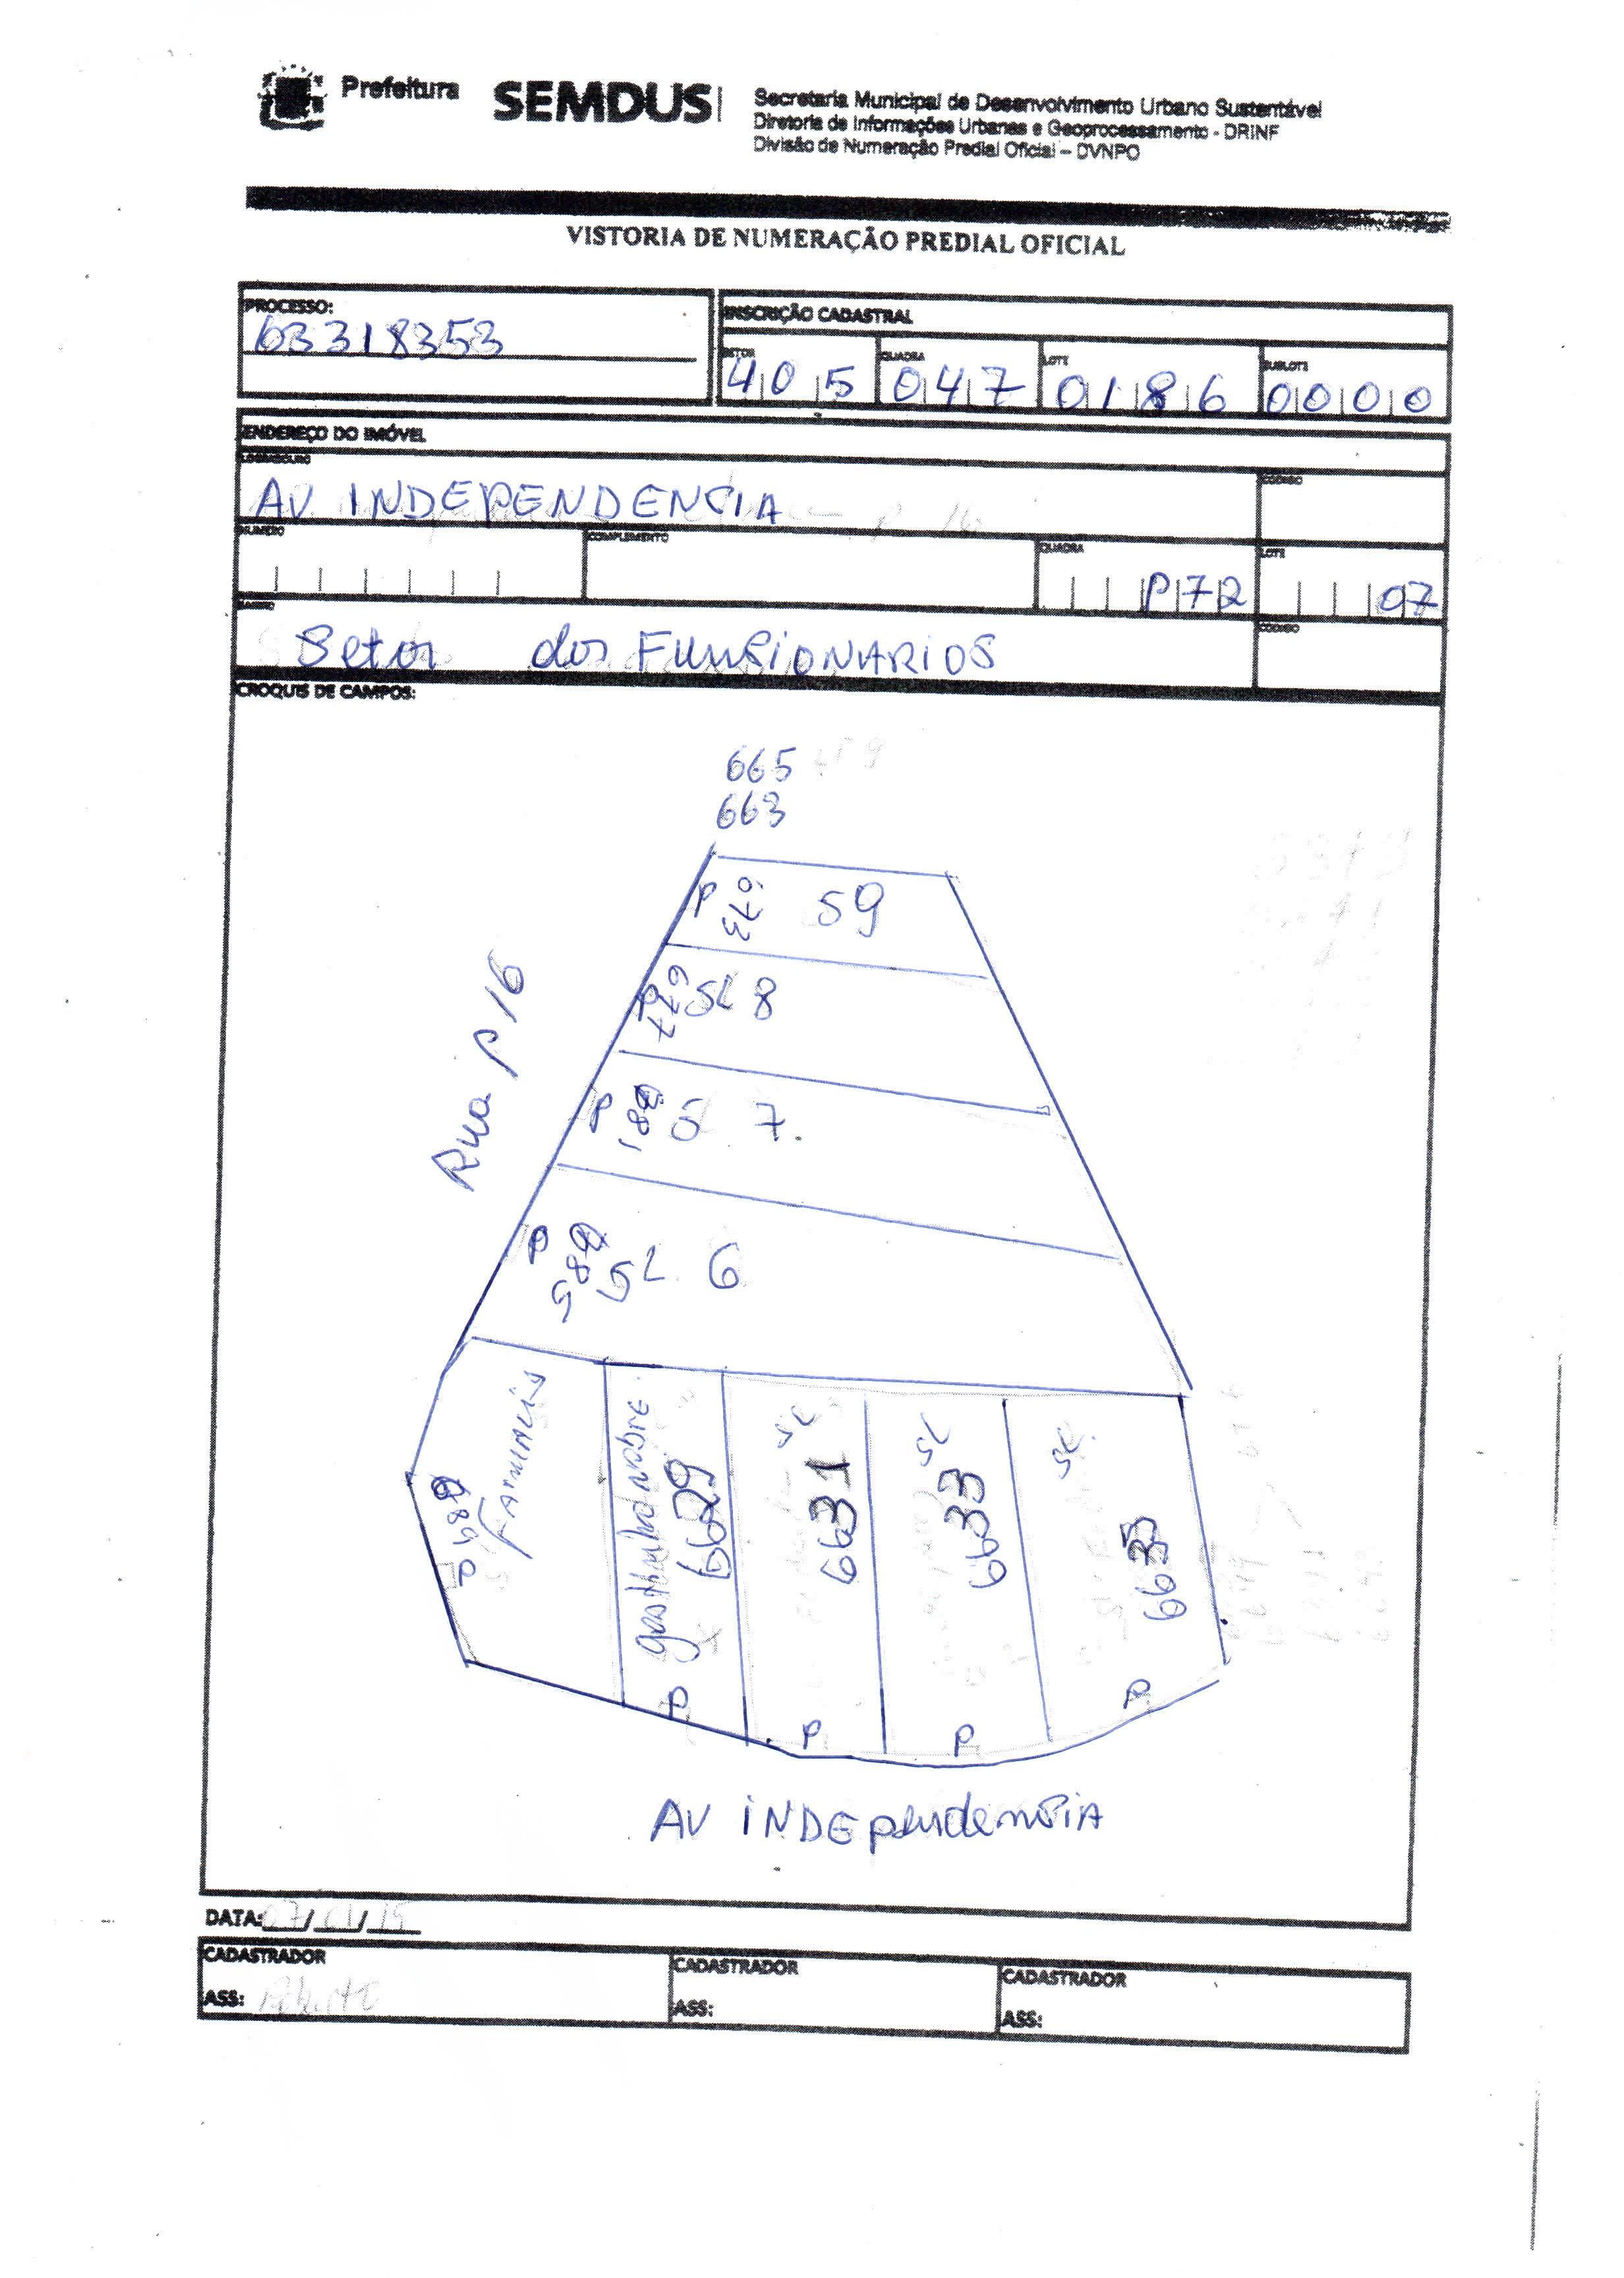 Prefeitura SEMDUS
Secretaria Municipal de Desenvolvimento Urbano Sustentável
Diretoria de Informações Urbanas e Geoprocessamento - DRINF
Divisão de Numeração Predial Oficial – DVNPO
VISTORIA DE NUMERAÇÃO PREDIAL OFICIAL
PROCESSO:
63318353
INSCRIÇÃO CADASTRAL
SETOR QUADRA LOTE SUBLOTE
405 047 0186 0000
ENDEREÇO DO IMÓVEL
LOGRADOURO CÓDIGO
AV INDEPENDENCIA
NUMERO COMPLEMENTO QUADRA LOTE
P72 07
BAIRRO CÓDIGO
Setor dos FUNSIONARIOS
CROQUIS DE CAMPOS:
665
663
P 673 59
P 677 SL 8
P 7
P SL 6
Rua P16
P
gastãozinho nobre
6629
SL
6631
SL
6633
SL
6635
P
P
P
P
AV INDEpendensiA
DATA: 07/01/15
CADASTRADOR CADASTRADOR CADASTRADOR
ASS: ASS: ASS: